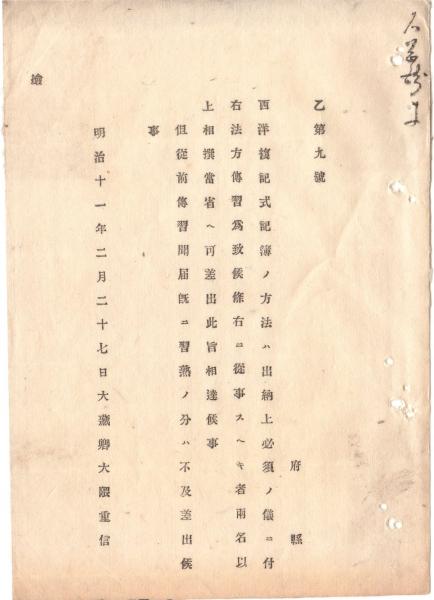 乙第九號
府縣
西洋複記式記簿ノ方法ハ出納上必須ノ儀ニ付
右法方傳習爲致候條右ニ從事スヘキ者兩名以
上相撰當省ヘ可差出此旨相達候事
但從前傳習聞届旣ニ習熟ノ分ハ不及差出候
事
明治十一年二月二十七日大藏卿大隈重信